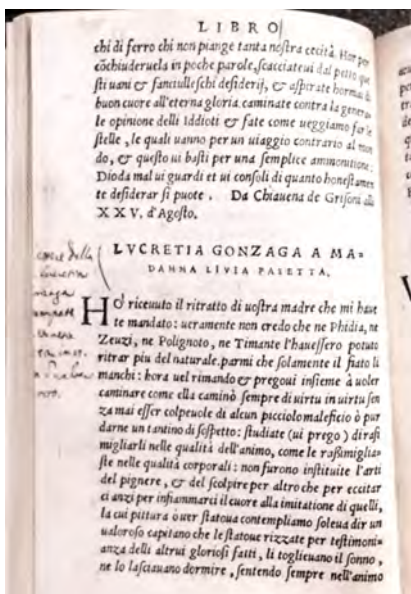 LIBRO
chi di ferro chi non piange tanta nostra cecità. Hor per
cōchiuderuela in poche parole, scacciateui dal petto que
sti uani & fanciulleschi desiderij, & aspirate hormai di
buon cuore all'eterna gloria. caminate contra la genera
le opinione delli Iddioti & fate come ueggiamo far le
stelle, le quali uanno per un uiaggio contrario al mon
do, & questo ui basti per una semplice ammonitione:
Dioda mal ui guardi et ui consoli di quanto honestamen
te desiderar si puote. Da Chiauena de Grisoni alli
XXV. d'Agosto.
LVCRETIA GONZAGA A MA=
DANNA LIVIA PALETTA.
HO riceuuto il ritratto di uostra madre che mi haue
te mandato: ueramente non credo che ne Phidia, ne
Zeuzi, ne Polignoto, ne Timante l'hauessero potuto
ritrar piu del naturale. parmi che solamente il fiato li
manchi: hora uel rimando & pregoui insieme à uoler
caminare come ella caminò sempre di uirtu in uirtu sen
za mai esser colpeuole di alcun picciolo maleficio ò pur
darne un tantino di sospetto: studiate (ui prego) di rasi
migliarli nelle qualità dell'animo, come le raßimiglia=
ste nelle qualità corporali: non furono instituite l'arti
del pignere, & del scolpire per altro che per eccitar
ci anzi per infiammarci il cuore alla imitatione di quelli,
la cui pittura ò uer statoua contempliamo soleua dir un
ualoroso capitano che le statoue rizzate per testimoni=
anza delli altrui gloriosi fatti, li toglieuano il sonno,
ne lo lasciauano dormire, sentendo sempre nell'animo